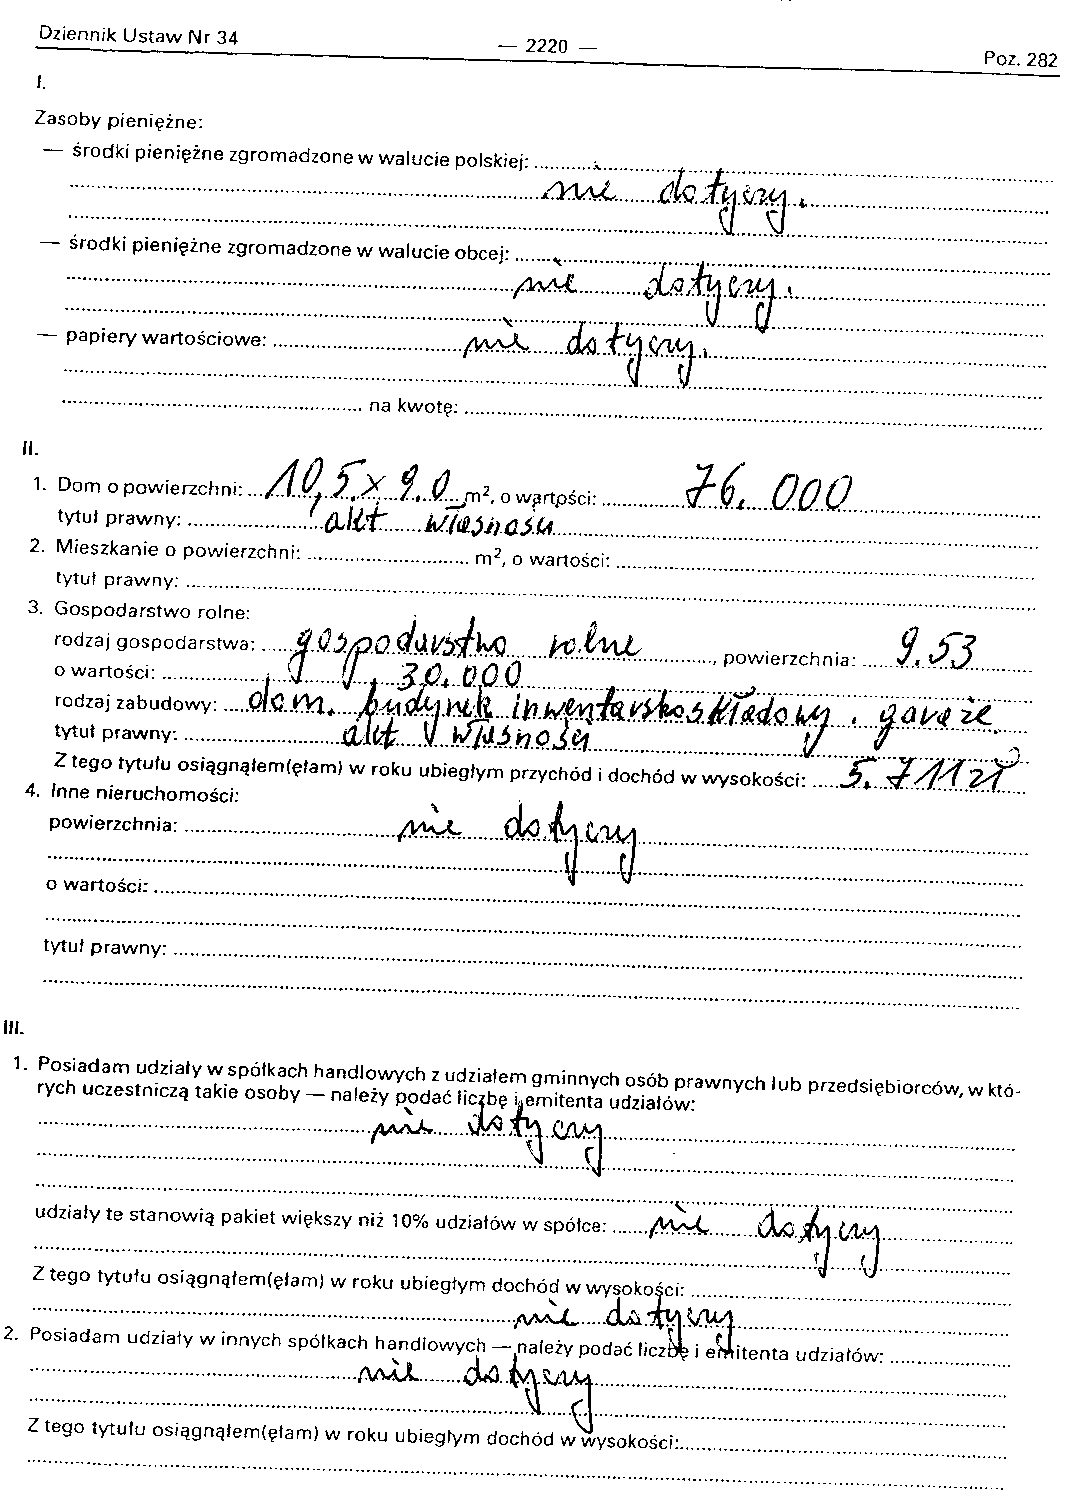 Dziennik Ustaw Nr 34 — 2220 — Poz. 282
I.
Zasoby pieniężne:
— środki pieniężne zgromadzone w walucie polskiej:
nie dotyczy.
— środki pieniężne zgromadzone w walucie obcej:
nie dotyczy.
— papiery wartościowe: nie dotyczy.
na kwotę:
II.
1. Dom o powierzchni: 10,5 x 9.0 m², o wartości: 76.000
tytuł prawny: akt własności
2. Mieszkanie o powierzchni: m², o wartości:
tytuł prawny:
3. Gospodarstwo rolne:
rodzaj gospodarstwa: gospodarstwo rolne, powierzchnia: 9.53
o wartości: 30.000
rodzaj zabudowy: dom. budynek inwentarskoskładowy. garaże
tytuł prawny: akt własności
Z tego tytułu osiągnąłem(ęłam) w roku ubiegłym przychód i dochód w wysokości: 5.711 zł
4. Inne nieruchomości:
powierzchnia: nie dotyczy
o wartości:
tytuł prawny:
III.
1. Posiadam udziały w spółkach handlowych z udziałem gminnych osób prawnych lub przedsiębiorców, w któ-
rych uczestniczą takie osoby — należy podać liczbę i emitenta udziałów:
nie dotyczy
udziały te stanowią pakiet większy niż 10% udziałów w spółce: nie dotyczy
Z tego tytułu osiągnąłem(ęłam) w roku ubiegłym dochód w wysokości:
nie dotyczy
2. Posiadam udziały w innych spółkach handlowych — należy podać liczbę i emitenta udziałów:
nie dotyczy
Z tego tytułu osiągnąłem(ęłam) w roku ubiegłym dochód w wysokości: